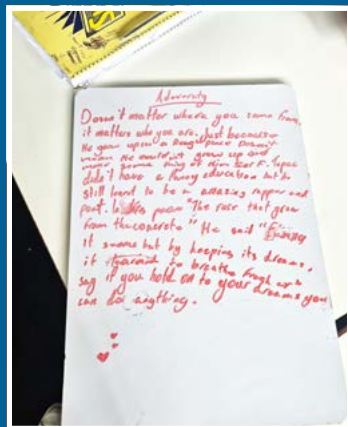 Adversity
Doesn't matter where you come from,
it matters who you are. Just because
He grew up in a Rough place Doesn't
mean He couldn't grow up and
make some thing of Him self. Tupac
didn't have a Funcy education but he
still learnt to be a amazing rapper and
poet. In his poem "The rose that grew
from the concrete" He said "Funny
it seems but by keeping its dreams,
it learned to breathe fresh air"
say if you hold on to your dreams you
can do anything.